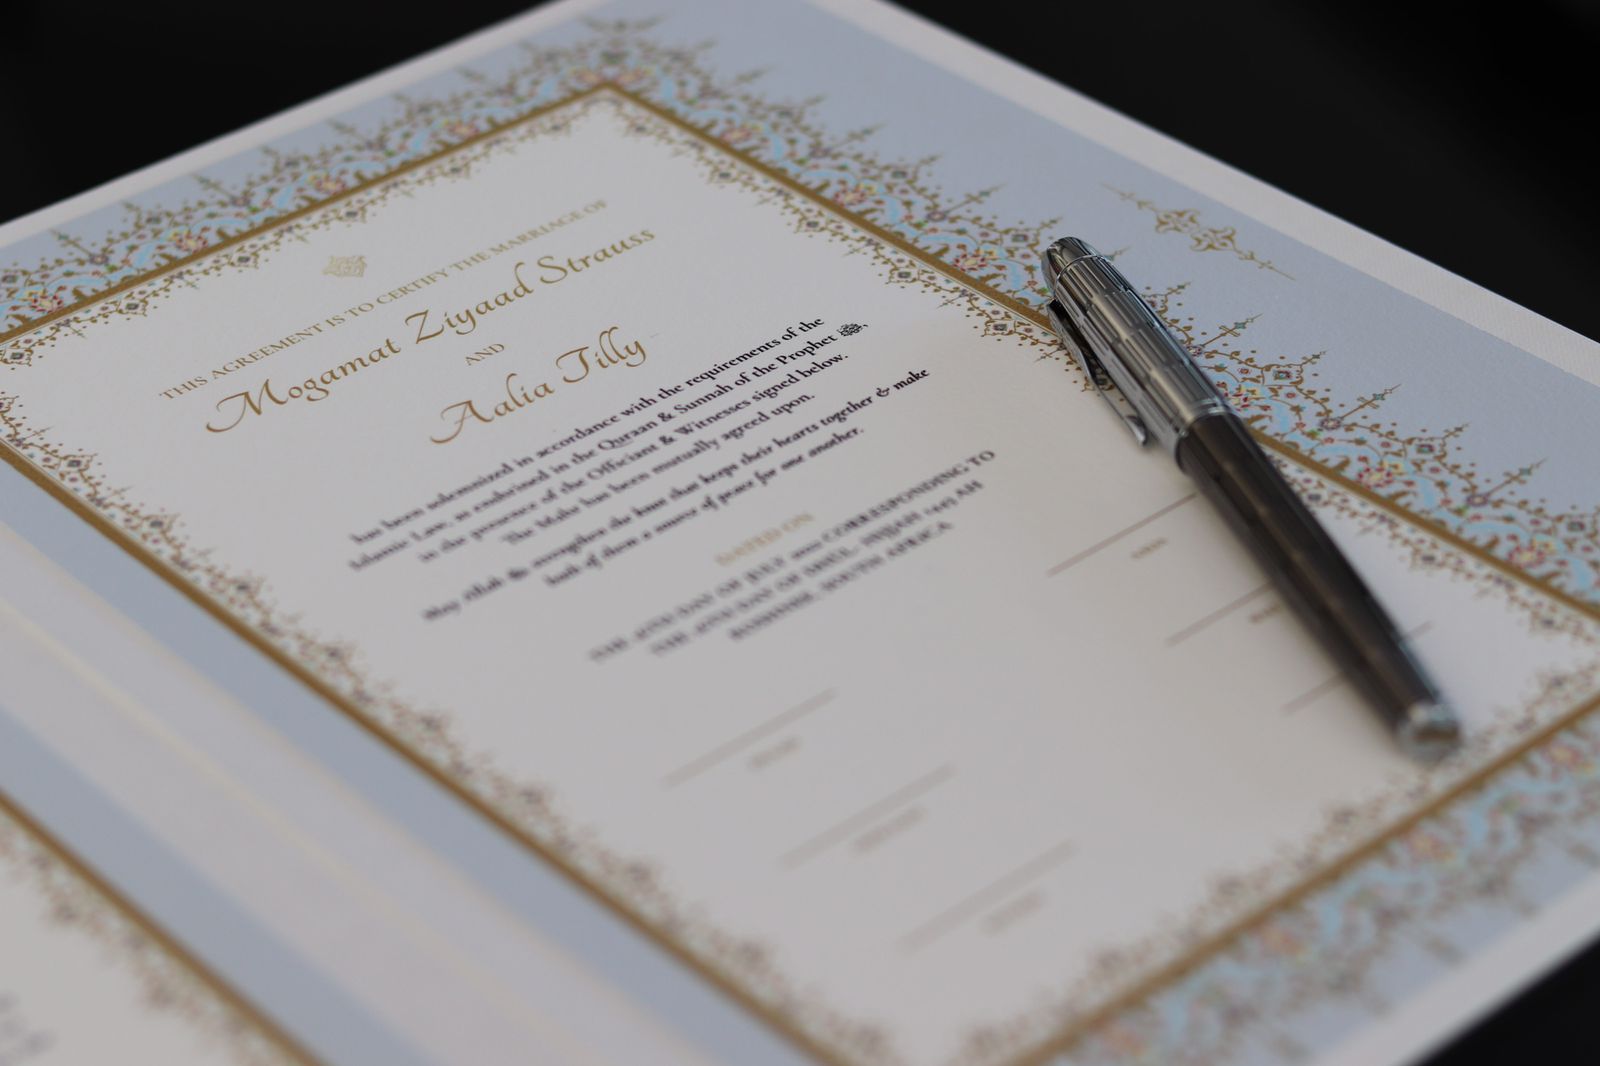 THIS AGREEMENT IS TO CERTIFY THE MARRIAGE OF
Mogamat Ziyaad Strauss
AND
Aalia Tilly
has been solemnized in accordance with the requirements of the
Islamic Law, as enshrined in the Quraan & Sunnah of the Prophet ﷺ,
in the presence of the Officiant & Witnesses signed below.
The Mahr has been mutually agreed upon.
May Allah strengthen the bond that keeps their hearts together & make
both of them a source of peace for one another.
DATED ON
DAY OF JULY CORRESPONDING TO
DAY OF DHUL HIJJAH AH
SOUTH AFRICA